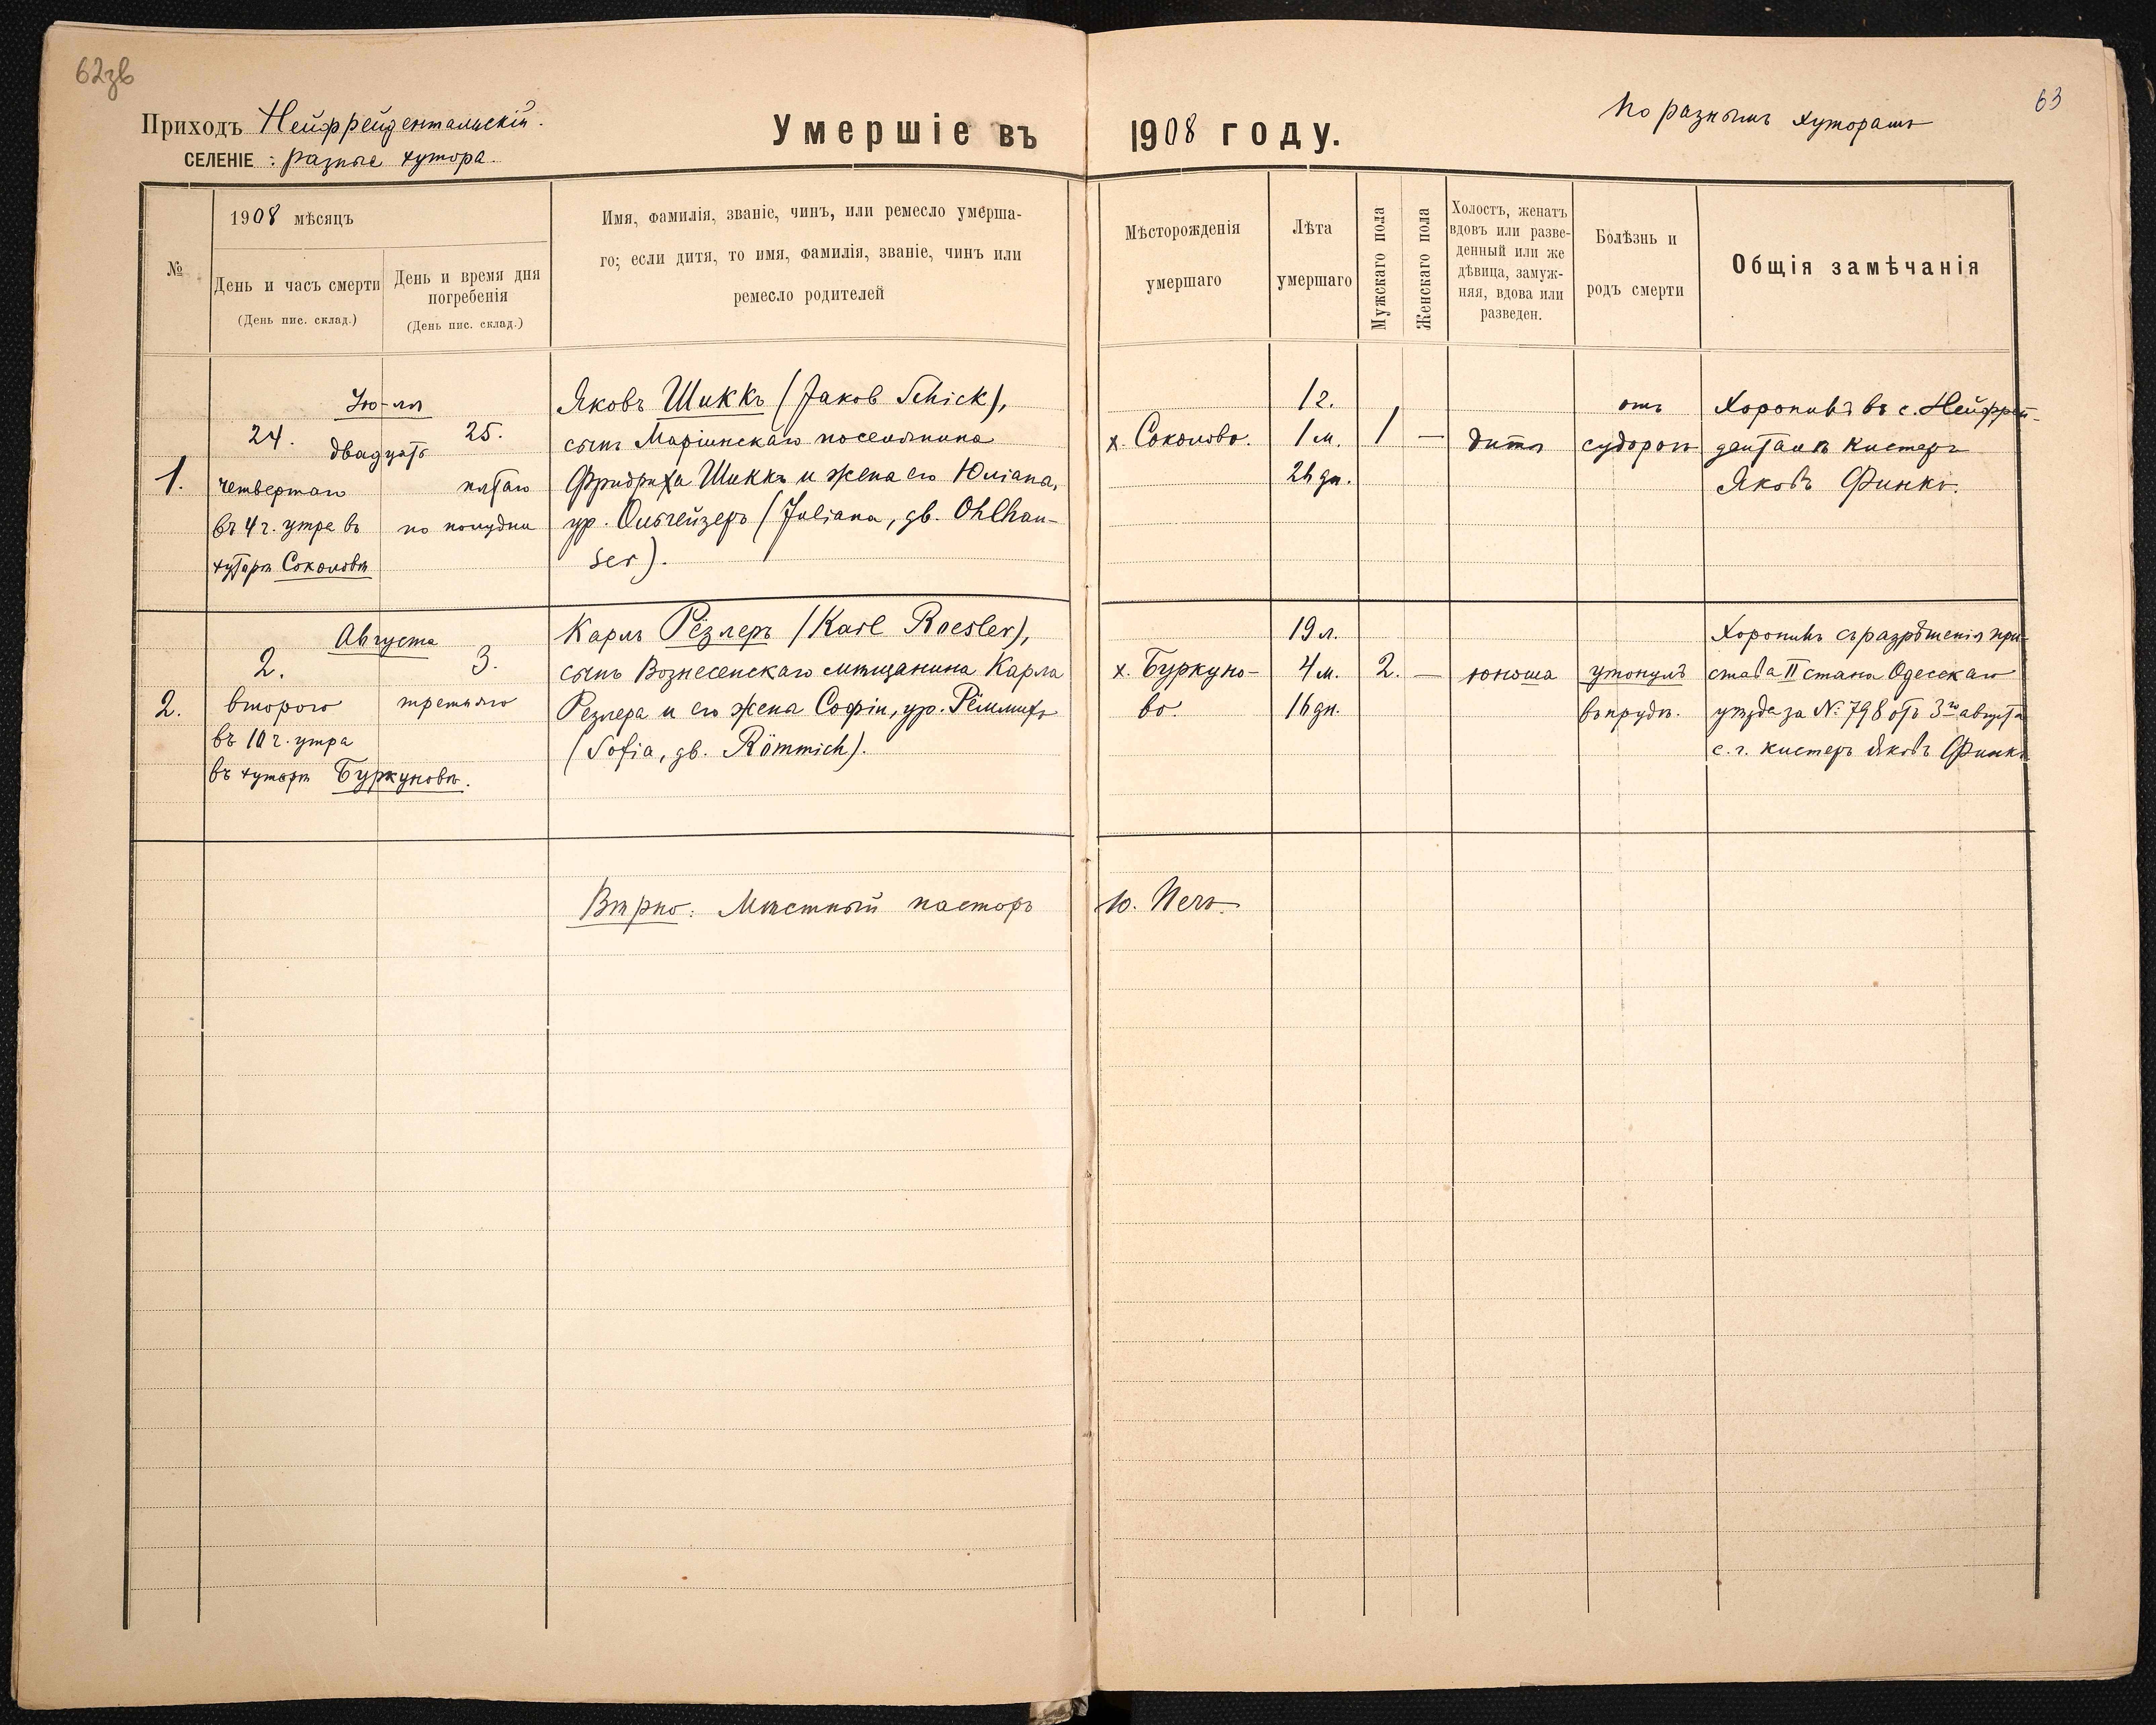 62зв
63
Приходъ Нейфрейдентальскій.
СЕЛЕНІЕ: разные хутора.
Умершіе въ 1908 году.
По разнымъ хуторамъ
№
1908 мѣсяцъ
День и часъ смерти
(День пис. склад.)
День и время дня
погребенія
(День пис. склад.)
Имя, фамилія, званіе, чинъ, или ремесло умерша-
го; если дитя, то имя, фамилія, званіе, чинъ или
ремесло родителей
Мѣсторожденія
умершаго
Лѣта
умершаго
Мужскаго пола
Женскаго пола
Холостъ, женатъ
вдовъ или разве-
денный или же
дѣвица, замуж-
няя, вдова или
разведен.
Болѣзнь и
родъ смерти
Общія замѣчанія
1.
Іюля
24. 25.
двадцать
четвертаго пятаго
въ 4 ч. утра въ по полудни
хуторѣ Соколовѣ
Яковъ Шиккъ (Jakob Schick),
сынъ Маріинскаго поселянина
Фридриха Шиккъ и жена его Юліана,
ур. Ольгейзеръ (Juliana, gb. Ohlhau-
ser).
х. Соколово.
1 г.
1 м.
26 дн.
1 —
дитя
отъ
судорогъ
Хоронилъ въ с. Нейфрей-
денталѣ кистеръ
Яковъ Финкъ.
2.
Августа
2. 3.
второго третьяго
въ 10 ч. утра
въ хуторѣ Буркуновѣ.
Карлъ Рёзлеръ (Karl Roesler),
сынъ Вознесенскаго мѣщанина Карла
Резлера и его жена Софіи, ур. Рёммихъ
(Sofia, gb. Römmich).
х. Буркуно-
во.
19 л.
4 м.
16 дн.
2. —
юноша
утонулъ
въ прудѣ.
Хоронилъ съ разрѣшенія при-
става II стана Одесскаго
уѣзда за №: 798 отъ 3го августа
с. г. кистеръ Яковъ Финкъ
Вѣрно: Мѣстный пасторъ Ю. Печъ.